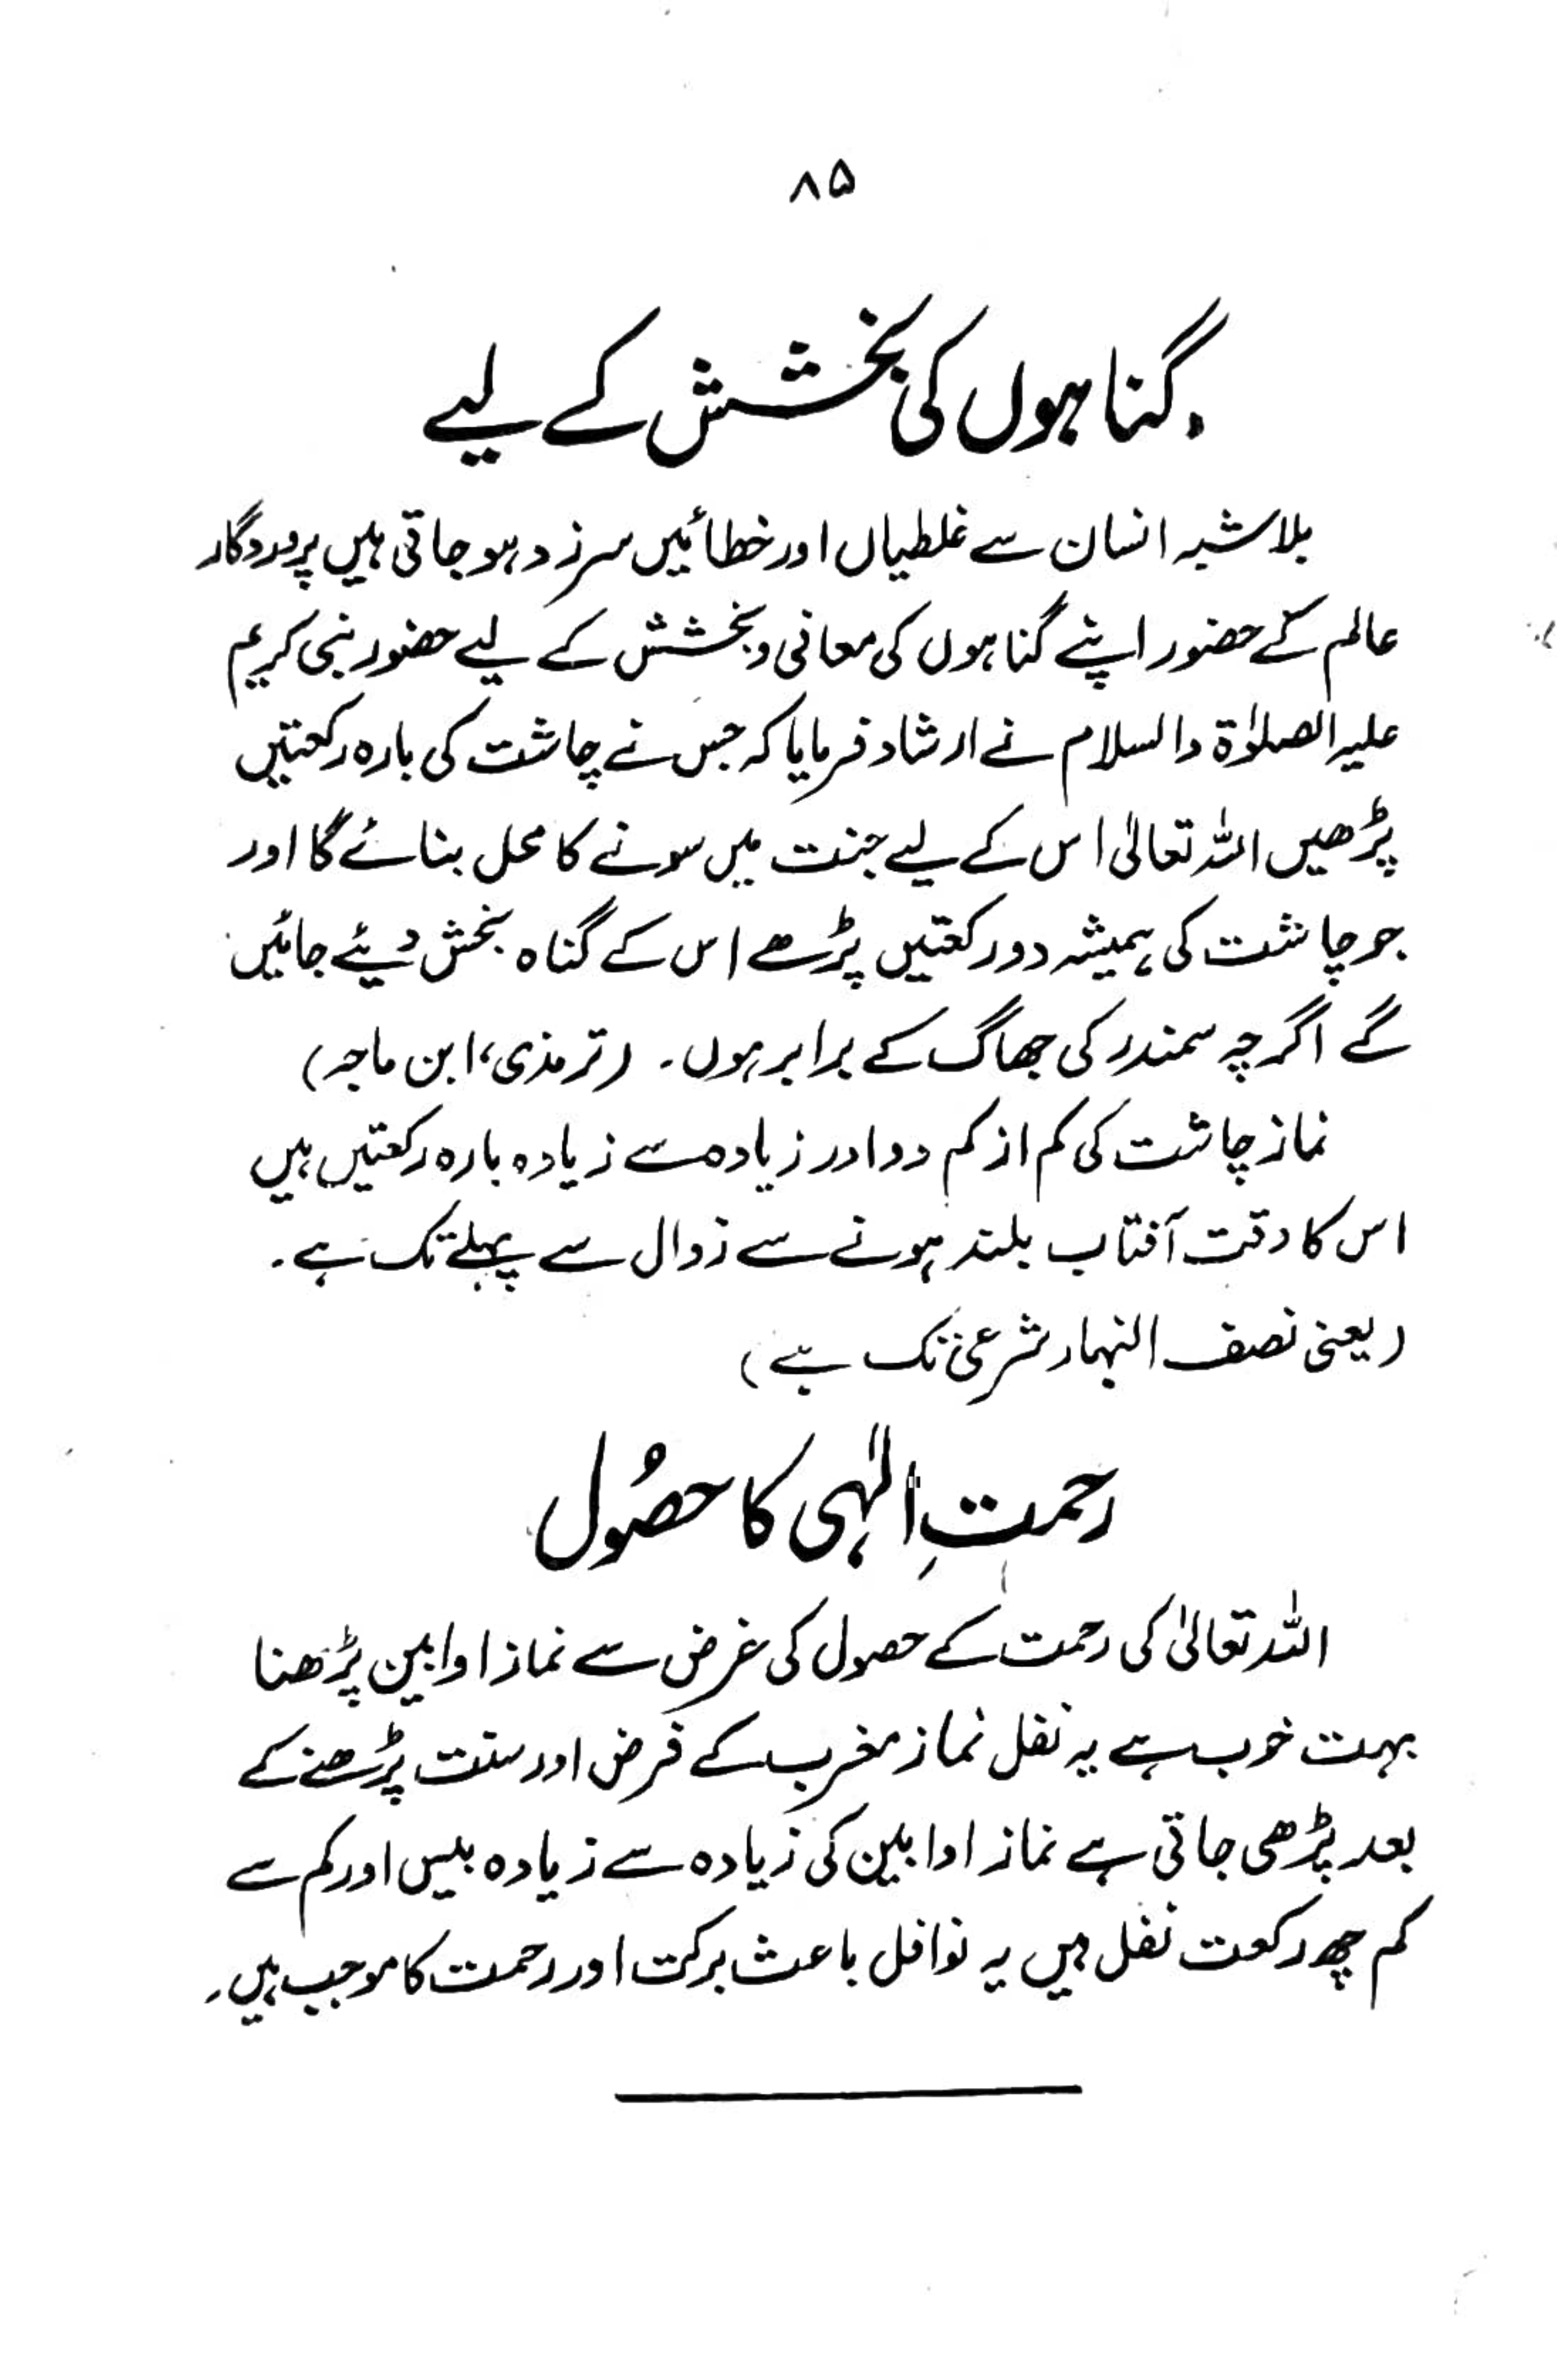 ۸۵
گناہوں کی بخشش کے لیے
بلاشبہ انسان سے غلطیاں اور خطائیں سرزد ہو جاتی ہیں پروردگار
عالم کے حضور اپنے گناہوں کی معافی و بخشش کے لیے حضور نبی کریم
علیہ الصلوٰۃ والسلام نے ارشاد فرمایا کہ جس نے چاشت کی بارہ رکعتیں
پڑھیں اللہ تعالیٰ اس کے لیے جنت میں سونے کا محل بنائے گا اور
جو چاشت کی ہمیشہ دو رکعتیں پڑھے اس کے گناہ بخش دیئے جائیں
گے اگرچہ سمندر کی جھاگ کے برابر ہوں۔ (ترمذی، ابن ماجہ)
نماز چاشت کی کم از کم دو اور زیادہ سے زیادہ بارہ رکعتیں ہیں
اس کا وقت آفتاب بلند ہونے سے زوال سے پہلے تک ہے۔
(یعنی نصف النہار شرعی تک ہے)
رحمتِ الٰہی کا حصُول
اللہ تعالیٰ کی رحمت کے حصول کی غرض سے نماز اوابین پڑھنا
بہت خوب ہے یہ نفل نماز مغرب کے فرض اور سنت پڑھنے کے
بعد پڑھی جاتی ہے نماز اوابین کی زیادہ سے زیادہ بیس اور کم سے
کم چھ رکعت نفل ہیں یہ نوافل باعث برکت اور رحمت کا موجب ہیں۔